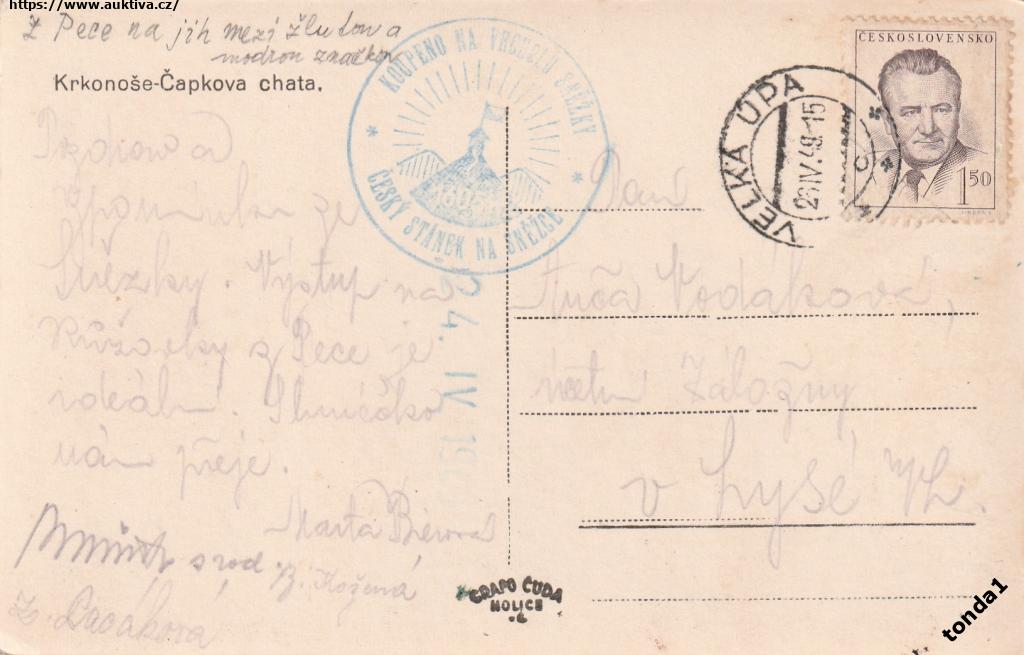 https://www.auktiva.cz/
z Pece na jih mezi žlutou a
modrou značkou
Krkonoše-Čapkova chata.
KOUPENO NA VRCHOLU SNĚŽKY
* ČESKÝ STÁNEK NA SNĚŽCE *
24. IV. 19
ČESKOSLOVENSKO
1 50
VELKÁ ÚPA
IV.49-15
Pozdrav a
vzpomínku ze
Sněžky. Výstup na
Růžovky z Pece je
ideální. Sluníčko
nám přeje.
Marta
s rod. B. Kožená
Z.
Paní
Vodáková,
Záložny
v Lysé n/L.
GRAFO ČUDA
HOLICE
tonda1